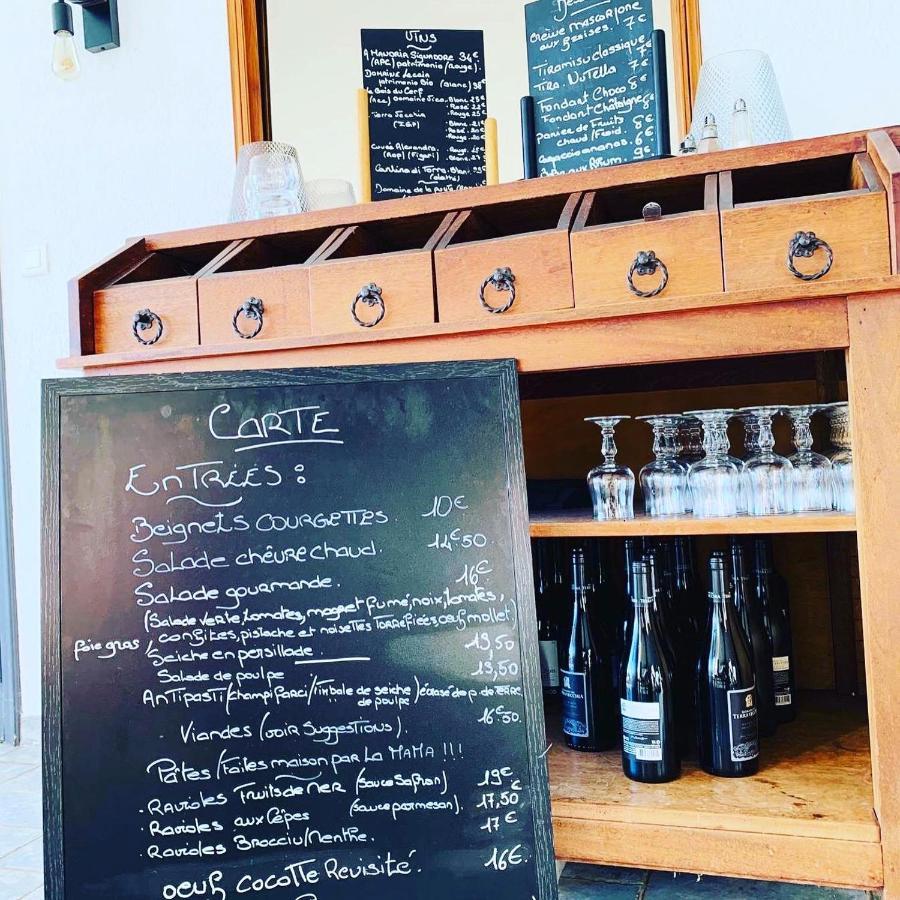 VINS
A MANDRIA SIGNADORE 34€
(APC) patrimonio/rouge).
DOMAINE
patrimonio Bio (Blanc)
Blanc
Rosé
Rouge 25€
Terra Vecchia
(IGP)
Blanc
Rosé
Rouge
Cuvée Alexandra. Rouge
(AOP) (Figari) Blanc
Cantina di Torra. Blanc
Domaine de la
crème MASCARPONE
aux fraises. 7€
Tiramisu classique 7€
TIRA NUTELLA 7€
Fondant Choco 8€
Fondant Châtaigne 8€
panier de Fruits 8€
chaud/Froid.
carpaccio ananas. 6€
Baba aux Rhum. 9€
CARTE
ENTRÉES :
Beignets COURGETTES. 10€
Salade chèvre chaud. 14€50
Salade gourmande. 16€
(Salade verte, tomates, magret fumé, noix, tomates,
confites, pistache et noisettes TORRéfiées, oeuf mollet
foie gras)
Seiche en persillade 19,50
Salade de poulpe 13,50
ANTIPASTI/champi farci/Timbale de seiche/écrasé de p. de TERRE
de poulpe
16€50.
Viandes (voir Suggestions).
Pâtes/Faites maison par la MAMA !!!
• Ravioles Fruits de MER (sauce Safran) 19€
• Ravioles aux Cêpes (sauce parmesan). 17,50€
• Ravioles Brocciu/Menthe. 17€
oeuf COCOTTE Revisité. 16€.
TERRA VECCHIA